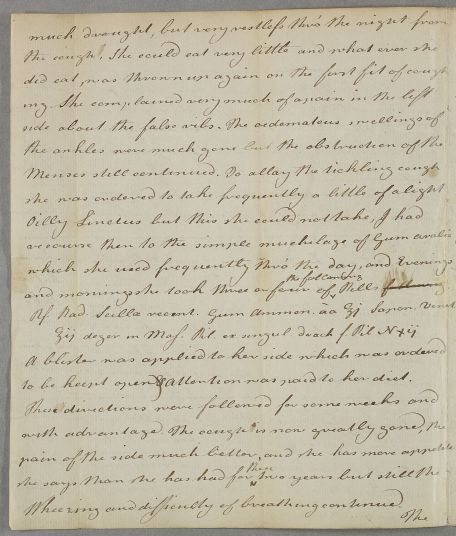 much drought, but very restless thro' the night from
the cough. She could eat very little and what ever she
did eat, was thrown up again on the first fit of cough
ing. She complained very much of a pain in the left
side about the false ribs. The oedematous swellings of
the ankles were much gone but the obstruction of the
Menses still continued. To allay the tickling cough
she was ordered to take frequently a little of a light
Oilly Linctus but this she could not take, I had
recourse then to the simple muchulage of Gum arabic
which she used frequently thro' the day, and Evenings
and mornings she took three or four of the following Pills
Rad. Scilla recent. Gum Ammon. aa Sapon. Venet
in Mas. Pil. ex singul drach f Pil N xij
A blister was applied to her side which was ordered
to be keept open & Attention was paid to her diet.
These directions were followed for some weeks and
with advantage. The cough is now greatly gone, the
pain of the side much better, and she has more appetite
she says than she has had for these two years but still the
Wheezing and difficulty of breathing continued
The